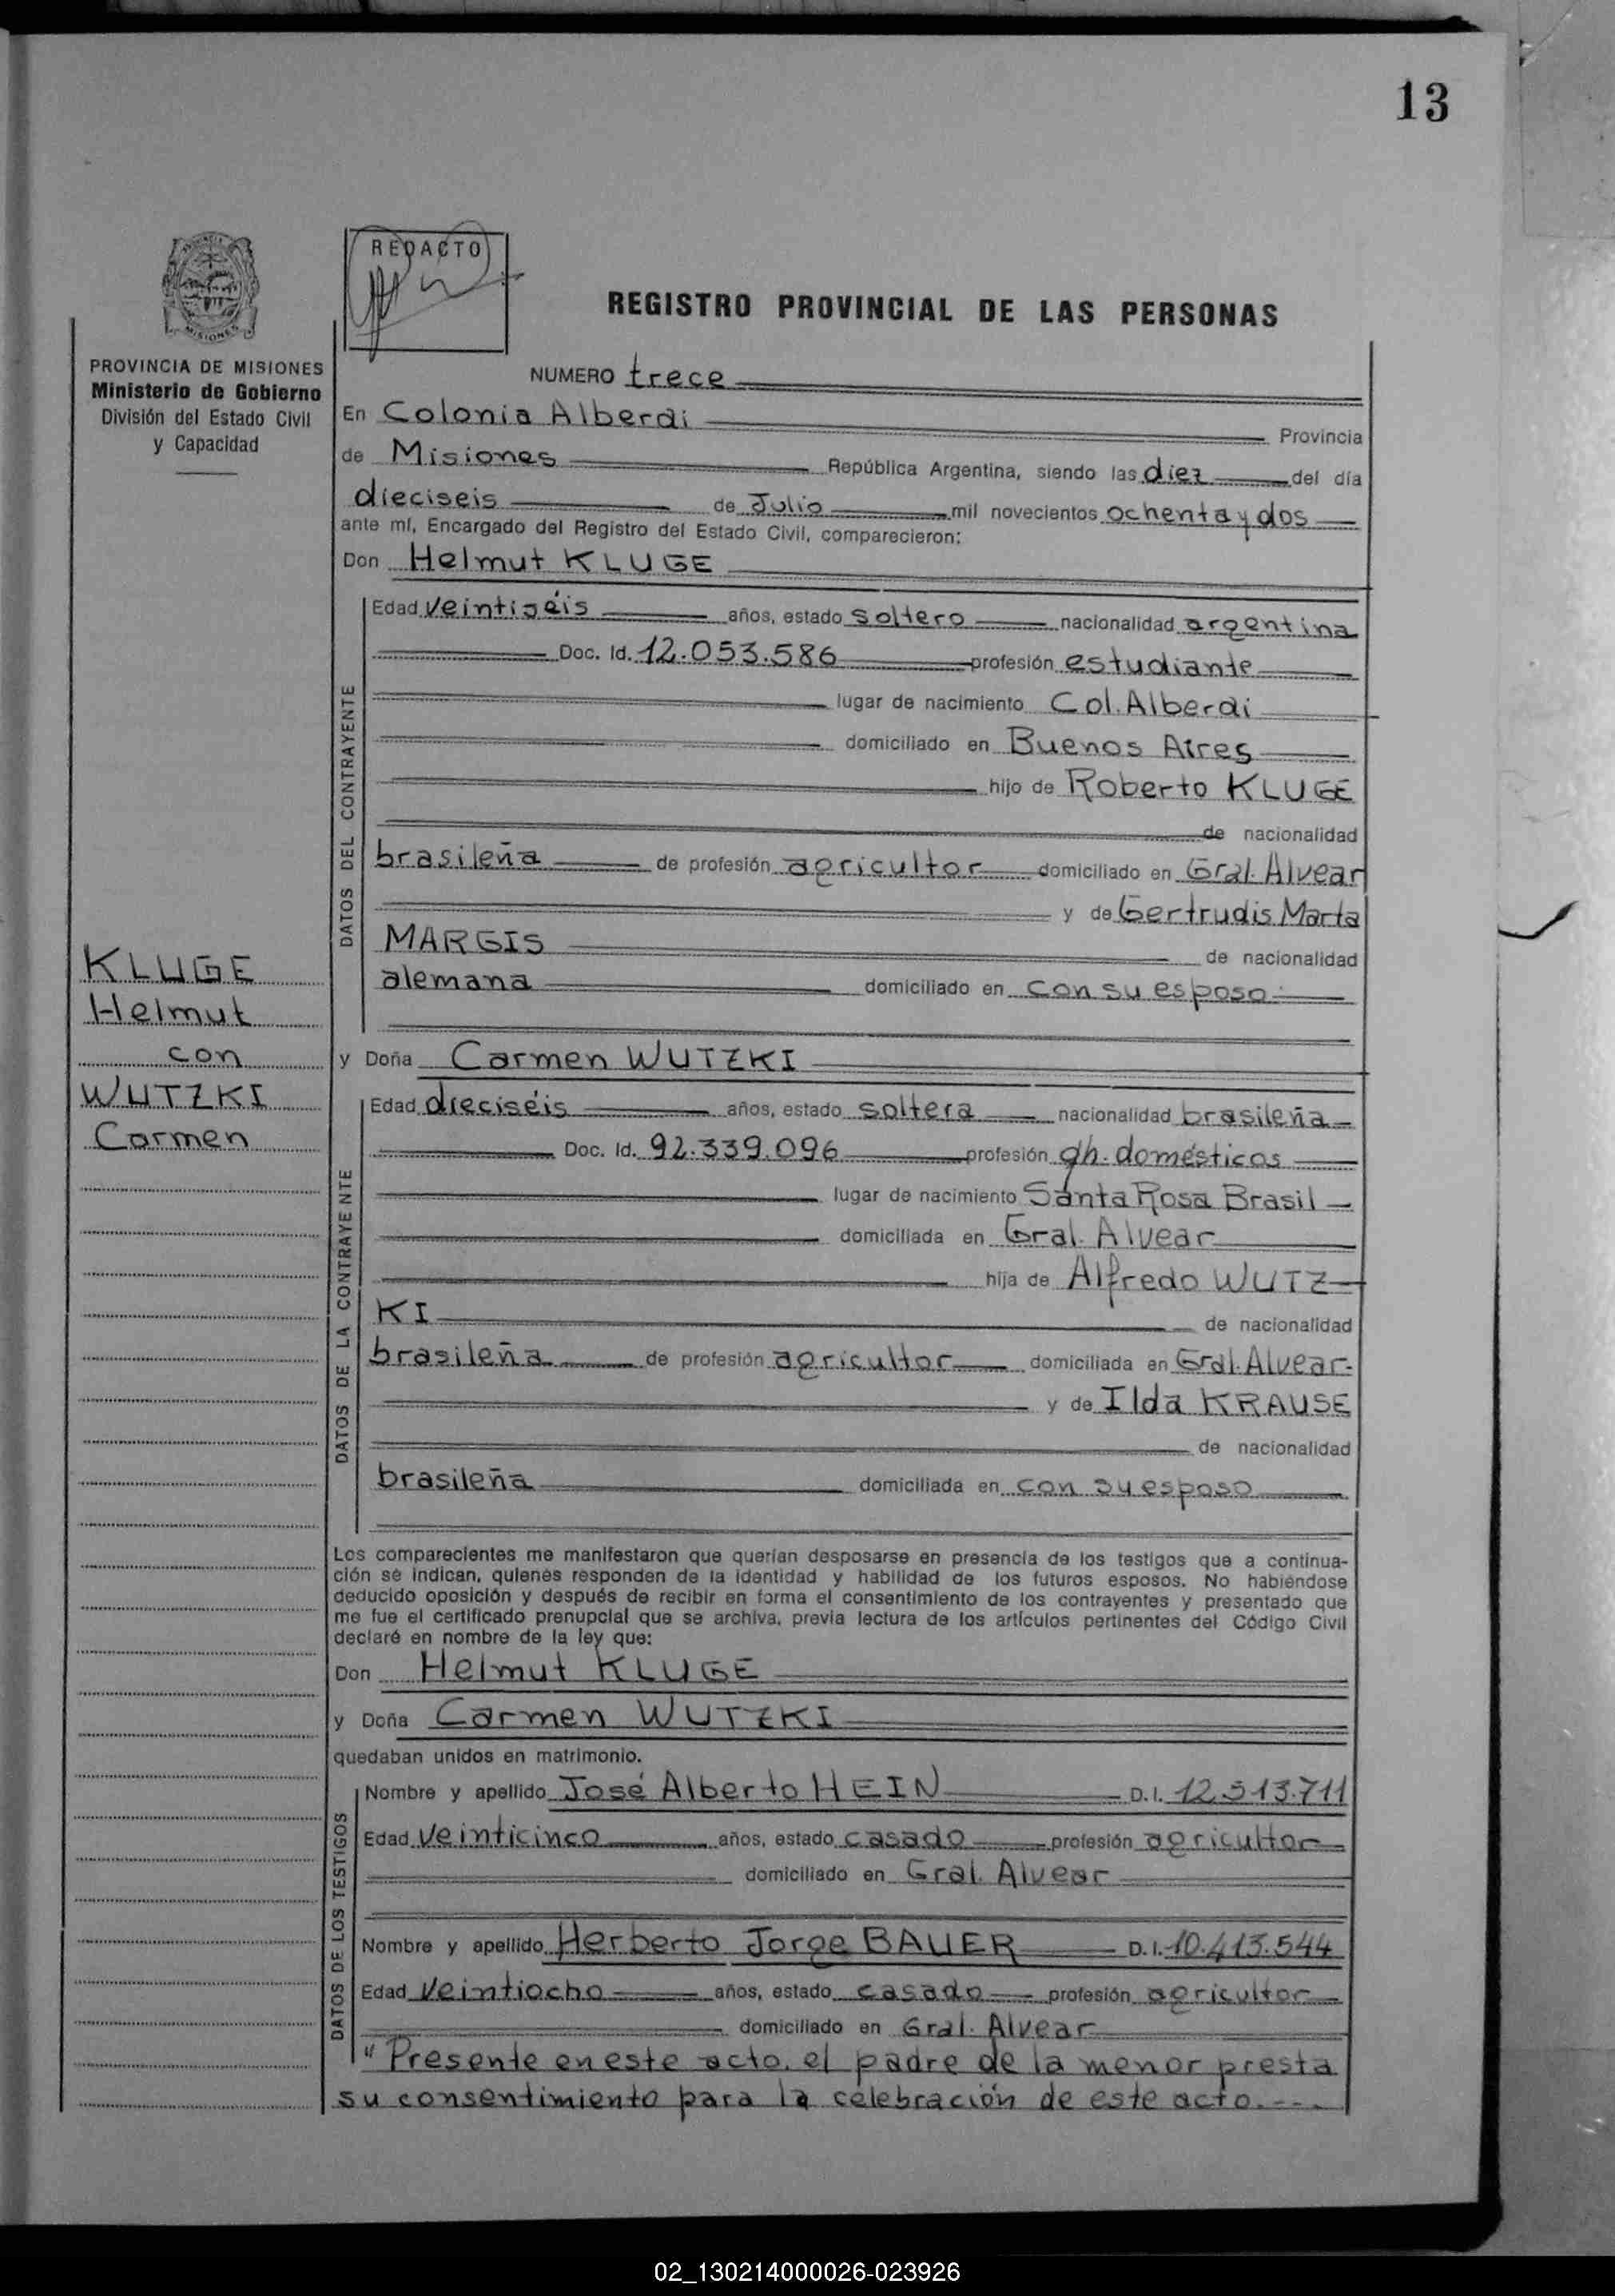 13
REDACTO
REGISTRO PROVINCIAL DE LAS PERSONAS
MISIONES
PROVINCIA DE MISIONES
Ministerio de Gobierno
División del Estado Civil
y Capacidad
NUMERO trece
En Colonia Alberdi Provincia
de Misiones República Argentina, siendo las diez del día
dieciseis de Julio mil novecientos ochenta y dos
ante mí, Encargado del Registro del Estado Civil, comparecieron:
Don Helmut KLUGE
DATOS DEL CONTRAYENTE
Edad veintiséis años, estado soltero nacionalidad argentina
Doc. Id. 12.053.586 profesión estudiante
lugar de nacimiento Col. Alberdi
domiciliado en Buenos Aires
hijo de Roberto KLUGE
de nacionalidad
brasileña de profesión agricultor domiciliado en Gral. Alvear
y de Gertrudis Marta
MARGIS de nacionalidad
alemana domiciliado en con su esposo
KLUGE
Helmut
con
WUTZKI
Carmen
y Doña Carmen WUTZKI
DATOS DE LA CONTRAYENTE
Edad dieciséis años, estado soltera nacionalidad brasileña
Doc. Id. 92.339.096 profesión qh. domésticos
lugar de nacimiento Santa Rosa Brasil
domiciliada en Gral. Alvear
hija de Alfredo WUTZ-
KI de nacionalidad
brasileña de profesión agricultor domiciliada en Gral. Alvear
y de Ilda KRAUSE
de nacionalidad
brasileña domiciliada en con su esposo
Los comparecientes me manifestaron que querían desposarse en presencia de los testigos que a continua-
ción se indican, quienes responden de la identidad y habilidad de los futuros esposos. No habiéndose
deducido oposición y después de recibir en forma el consentimiento de los contrayentes y presentado que
me fue el certificado prenupcial que se archiva, previa lectura de los artículos pertinentes del Código Civil
declaré en nombre de la ley que:
Don Helmut KLUGE
y Doña Carmen WUTZKI
quedaban unidos en matrimonio.
DATOS DE LOS TESTIGOS
Nombre y apellido José Alberto HEIN D.I. 12.513.711
Edad veinticinco años, estado casado profesión agricultor
domiciliado en Gral. Alvear
Nombre y apellido Herberto Jorge BAUER D.I. 10.413.544
Edad veintiocho años, estado casado profesión agricultor
domiciliado en Gral. Alvear
" Presente en este acto, el padre de la menor presta
su consentimiento para la celebración de este acto.---
02_130214000026-023926